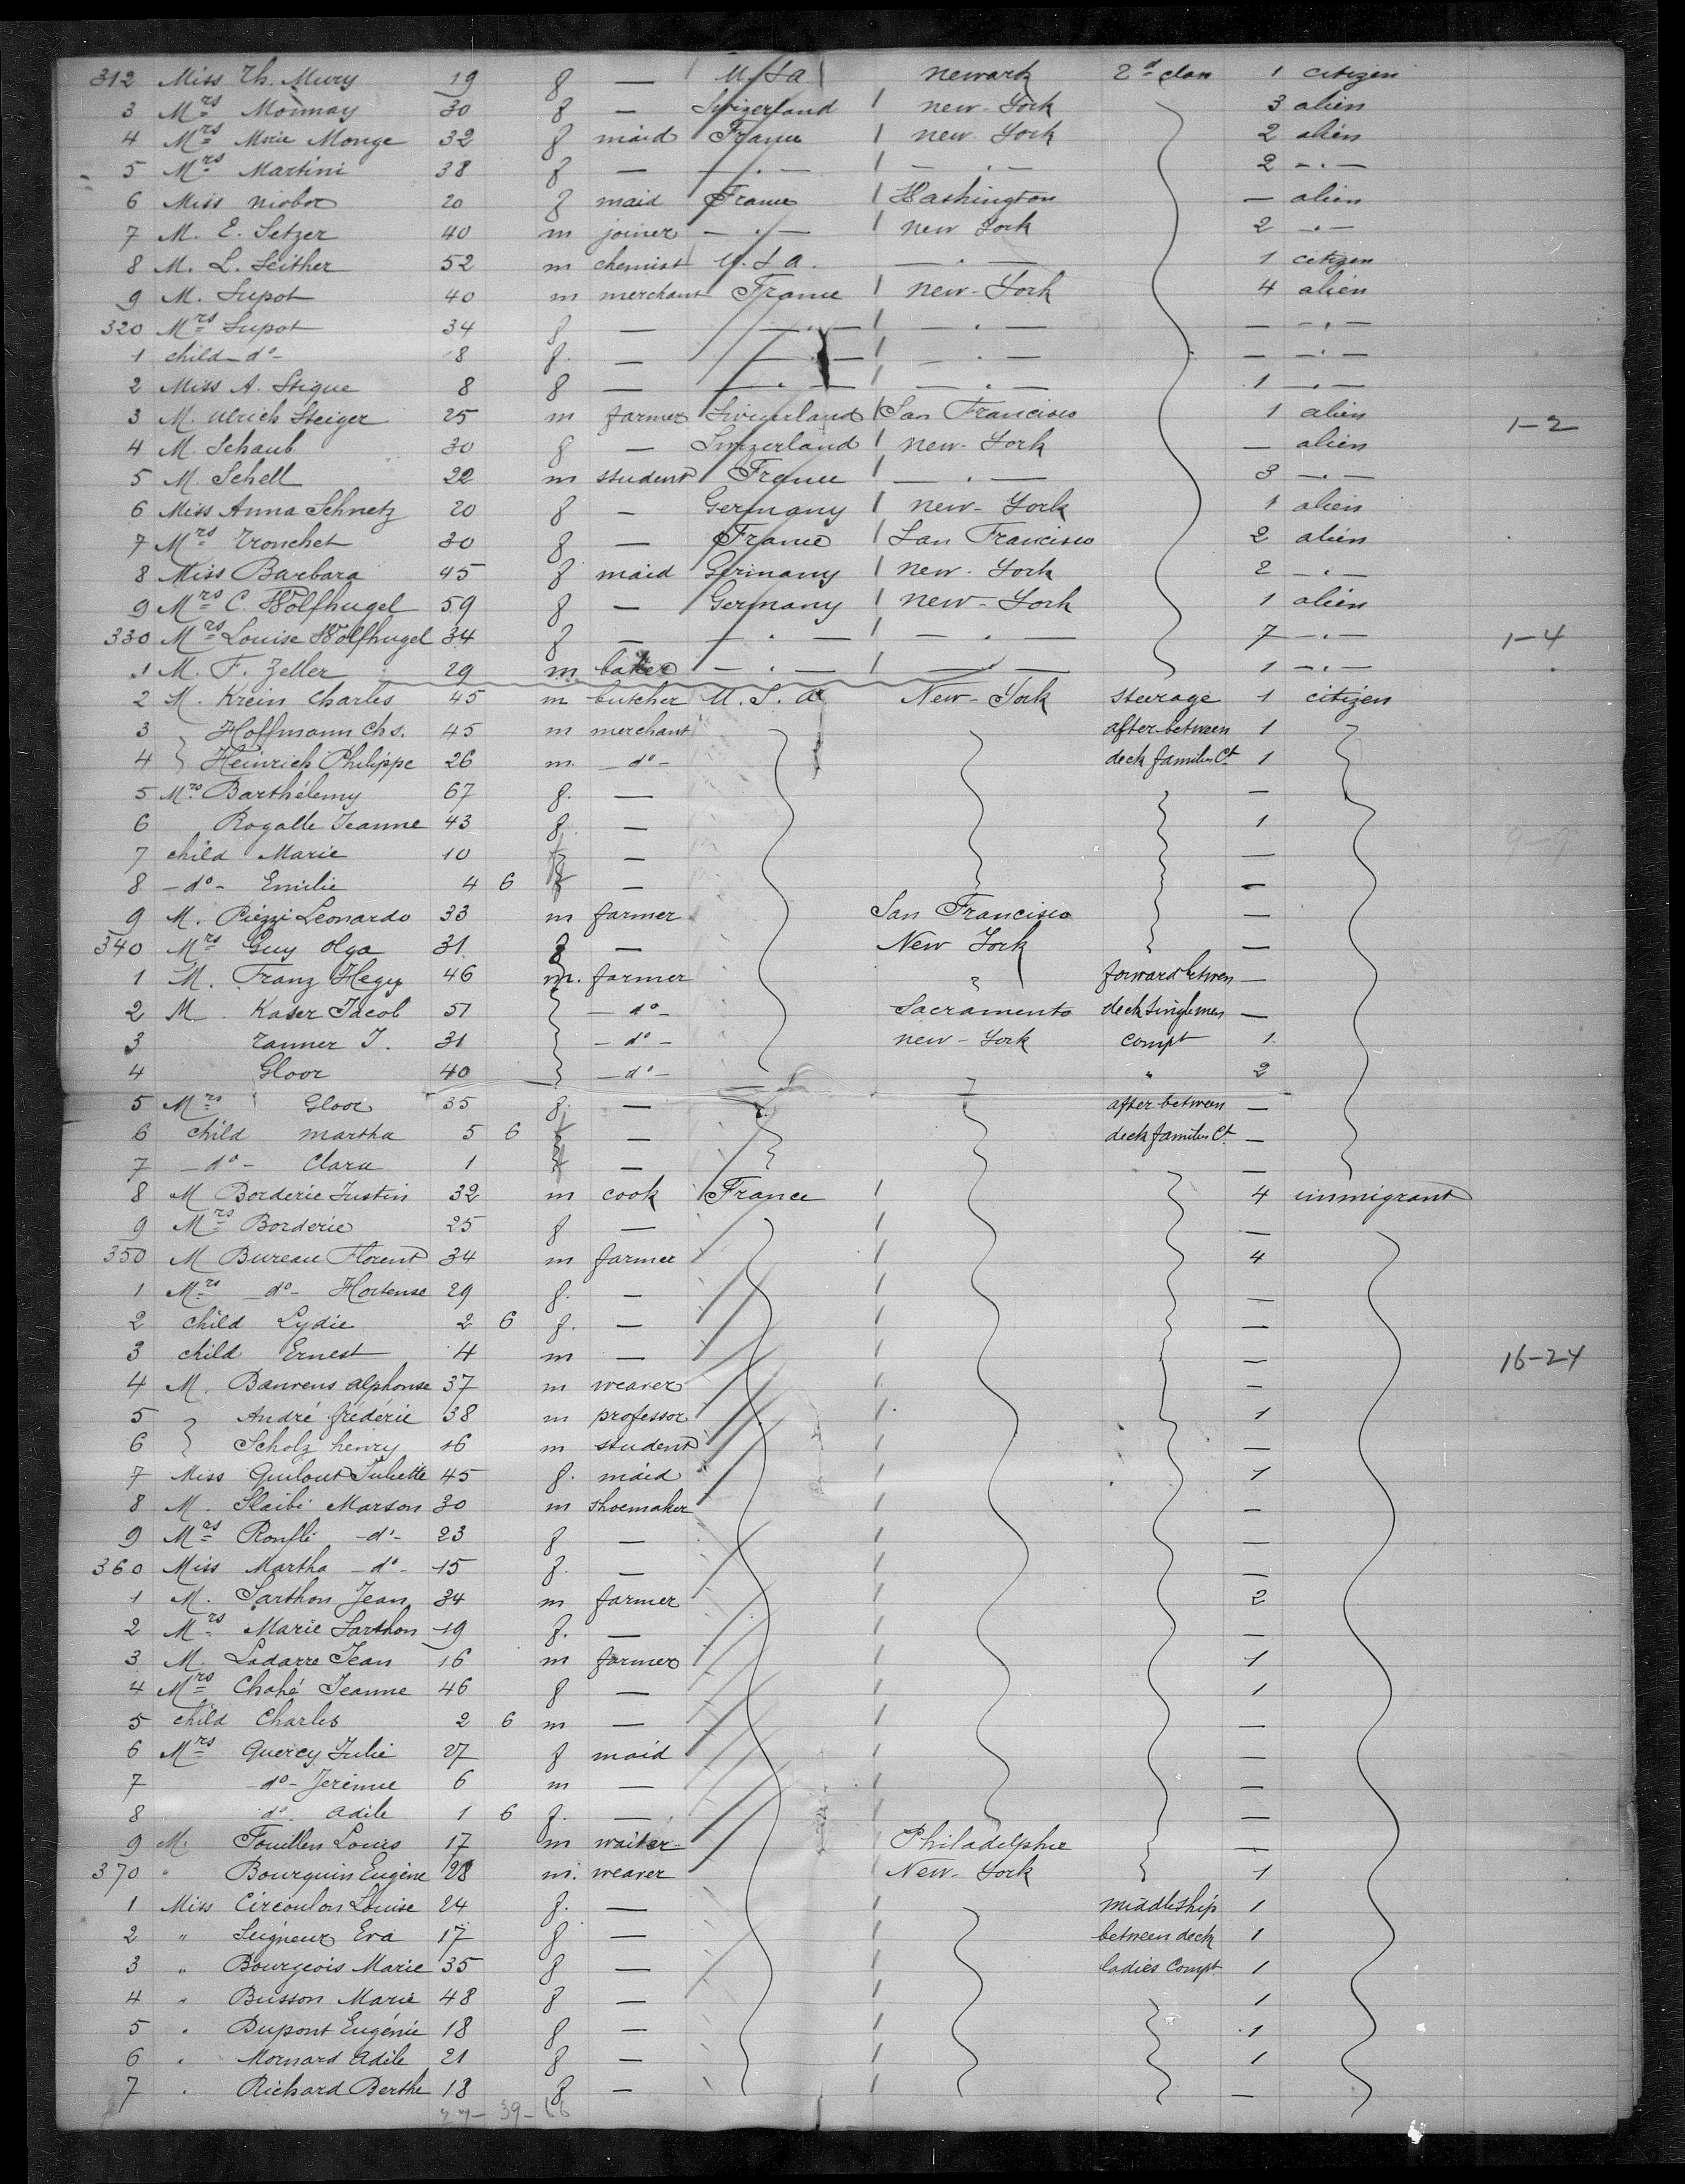 312 Miss Th. Mury 19 f — U.S.a Newark 2d class 1 citizen
3 Mrs Monnay 30 f — Swizerland New-York 3 alien
4 Mrs Marie Monge 32 f maid France New-York 2 alien
5 Mrs Martini 38 f — — . — — . — 2 — . —
6 Miss 20 f maid France Washington — alien
7 M. E. Setzer 40 m joiner — . — New York 2 — . —
8 M. L. Seither 52 m chemist U.S.a. — . — 1 citizen
9 M. Supot 40 m merchant France New-York 4 alien
320 Mrs Supot 34 f — — . — — . — — — . —
1 child -do- 8 f. — — . — — . — — — . —
2 Miss A. Stigue 8 f — — . — — . — 1 — . —
3 M. Ulrich Steiger 25 m farmer Swizerland San Francisco 1 alien 1-2
4 M. Schaub 30 f — Swizerland New-York — alien
5 M. Schell 22 m student France — . — 3 — . —
6 Miss Anna Schnetz 20 f — Germany New-York 1 alien
7 Mrs Tronchet 30 f — France San Francisco 2 alien
8 Miss Barbara 45 f maid Germany New-York 2 — . —
9 Mrs C. Wolfhugel 59 f — Germany New-York 1 alien
330 Mrs Louise Wolfhugel 34 f — — . — — . — 7 — . — 1-4
1 M. F. Zeller 29 m baker — . — — . — 1 — . —
2 M. Krein Charles 45 m butcher U.S.a New-York steerage 1 citizen
3 Hoffmann Chs. 45 m merchant after between 1
4 Heinrich Philippe 26 m. -do- deck families Ct. 1
5 Mrs Barthélemy 67 f. — —
6 Rogalle Jeanne 43 f. — 1
7 child Marie 10 f — —
8 -do- Emilie 4 6 f — —
9 M. Piezzi Leonardo 33 m farmer San Francisco —
340 Mrs Guy Olga 31 f — New York —
1 M. Franz Hegy 46 m. farmer forward betwen —
2 M. Kaser Jacob 51 -do- Sacramento deck single men —
3 Tanner J. 31 -do- New-York compt 1
4 Gloor 40 -do- " 2
5 Mrs Gloor 35 f. — after between —
6 child Martha 5 6 f — deck families Ct. —
7 -do- Clara 1 f — —
8 M Borderie Justin 32 m cook France 4 immigrant
9 Mrs Borderie 25 f — —
350 M Bureau Florent 34 m farmer 4
1 Mrs -do- Hortense 29 f. — —
2 child Lydie 2 6 f. — —
3 child Ernest 4 m — — 16-24
4 M. Banrens alphonse 37 m weaver —
5 André frédéric 38 m professor 1
6 Scholz henry 16 m student —
7 Miss Guilout Juliette 45 f. maid 1
8 M. Slaibi Marson 30 m shoemaker —
9 Mrs Ronfli -do- 23 f — —
360 Miss Martha -do- 15 f. — —
1 M. Sarthon Jean 34 m farmer 2
2 Mrs Marie Sarthon 19 f. — —
3 M. Ladarre Jean 16 m farmer 1
4 Mrs Chahé Jeanne 46 f — 1
5 child Charles 2 6 m — —
6 Mrs Quercy Julie 27 f maid —
7 -do- Jerémie 6 m — —
8 do adile 1 6 f. — —
9 M. Fouillen Louis 17 m waiter Philadelphie —
370 " Bourquin Eugène 28 m. weaver New-York 1
1 Miss Circoulon Louise 24 f. — middleship 1
2 " Seigneur Eva 17 f — between deck 1
3 " Bourgeois Marie 35 f — ladies Compt. 1
4 " Busson Marie 48 f — 1
5 " Dupont Eugénie 18 f — 1
6 " Mornard adile 21 f — 1
7 " Richard Berthe 18 f — —
27-39-66